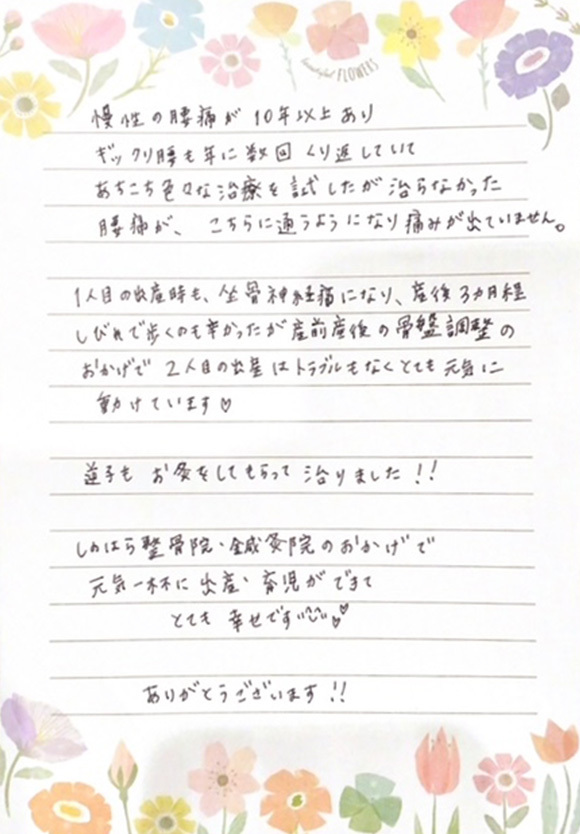 beautiful FLOWERS
慢性の腰痛が 10年以上あり
ギックリ腰も年に数回 くり返していて
あちこち色々な治療を試したが治らなかった
腰痛が、こちらに通うようになり痛みが出ていません。
1人目の出産時も、坐骨神経痛になり、産後3カ月程
しびれで歩くのも辛かったが産前産後の骨盤調整の
おかげで 2人目の出産はトラブルもなくとても元気に
動けています♡
逆子も お灸をしてもらって 治りました!!
しのはら整骨院・鍼灸院のおかげで
元気一杯に 出産・育児ができて
とても 幸せです
ありがとうございます!!